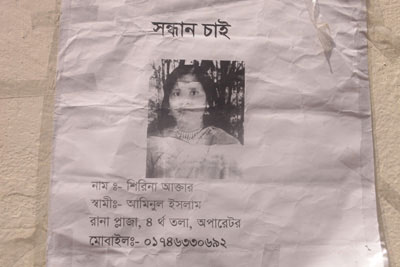 সন্ধান চাই
নাম ঃ- শিরিনা আক্তার
স্বামীঃ- আমিনুল ইসলাম
রানা প্লাজা, ৪ র্থ তলা, অপারেটর
মোবাইলঃ- ০১৭৪৬৩৩০৬৯২